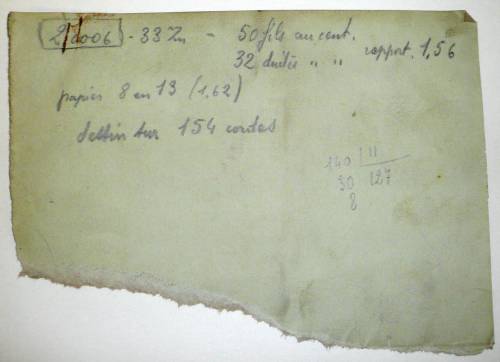 2/2006 - 33 Zn - 50 fils au cent.
32 duites " " rapport. 1,56
papier 8 en 13 (1,62)
dessin sur 154 cordes
140 | 11
30 127
8